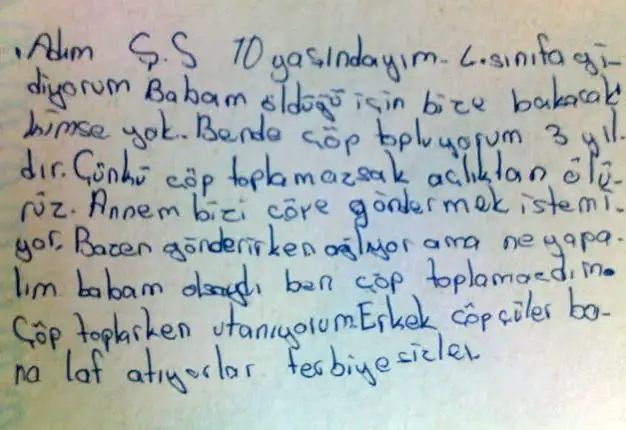 . Adım Ş.S 10 yaşındayım. 4. sınıfa gi-
diyorum Babam öldüğü için bize bakacak
kimse yok. Bende çöp topluyorum 3 yıl-
dır. Çünkü çöp toplamazsak açlıktan ölü-
rüz. Annem bizi çöre göndermek istemi-
yor. Bazen gönderirken ağlıyor ama ne yapa-
lım babam olsaydı ben çöp toplamazdım.
Çöp toplarken utanıyorum. Erkek çöpçüler ba-
na laf atıyorlar terbiyesizler